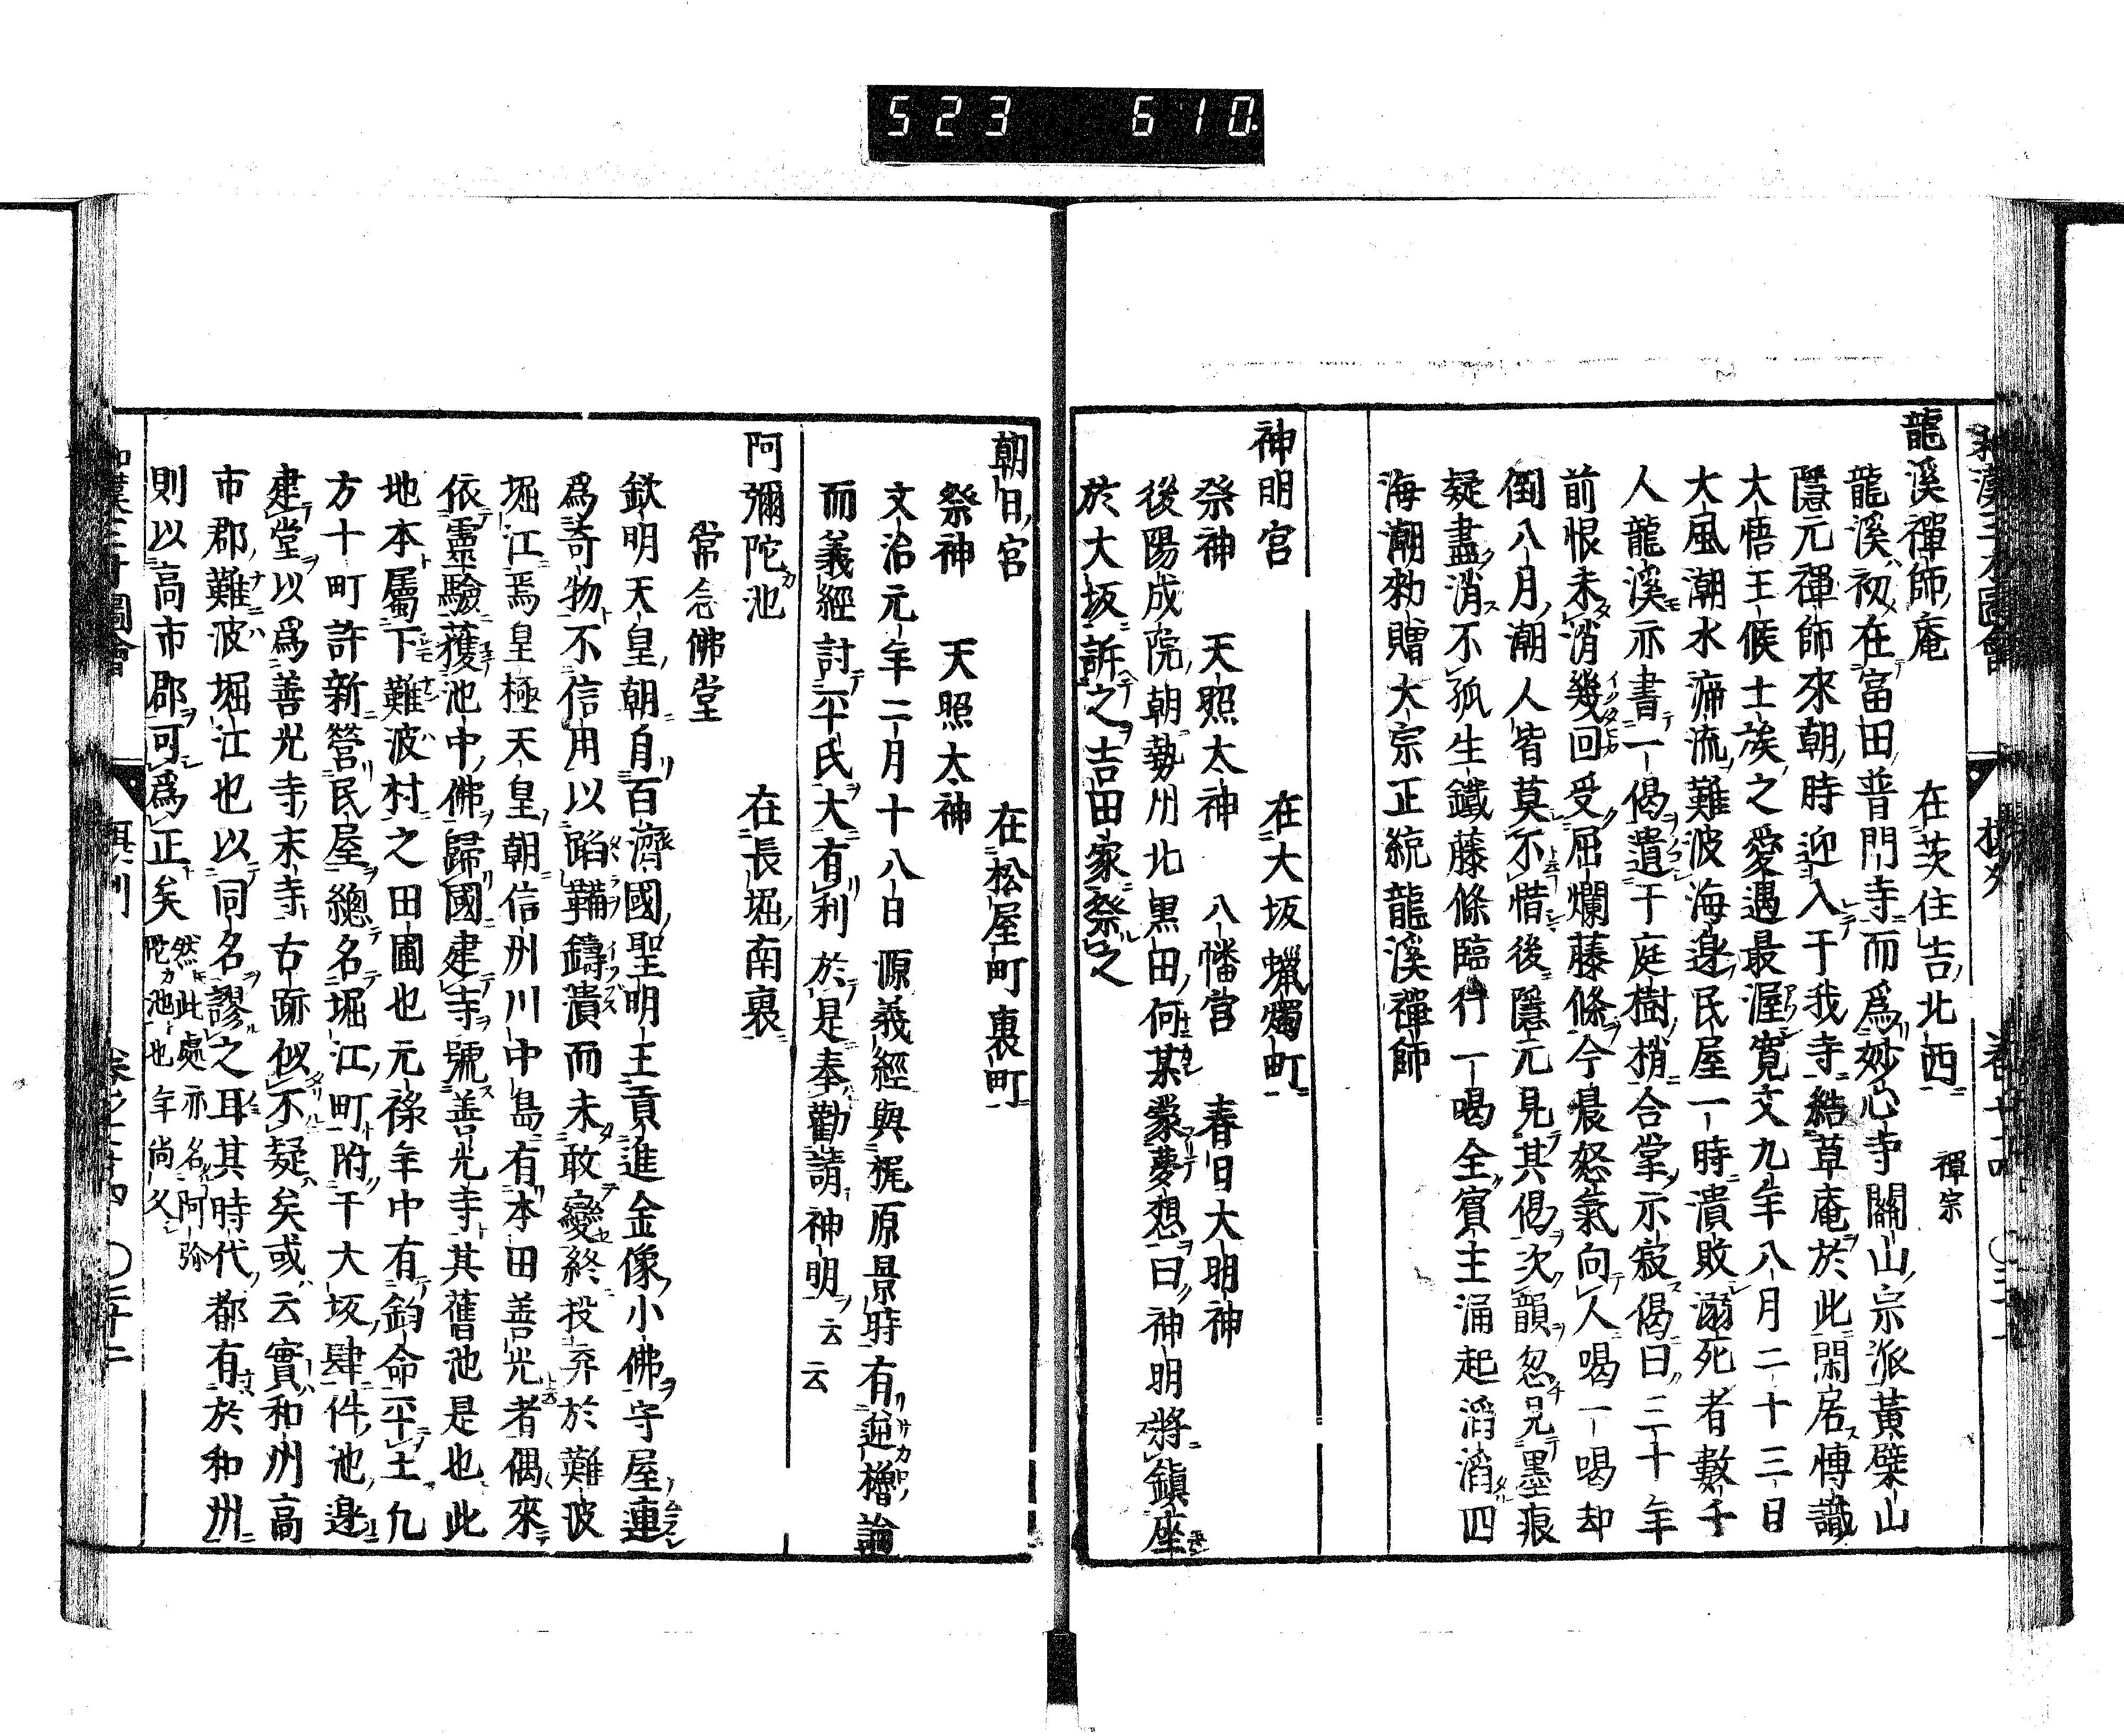 523 610
龍溪禪師庵 在茨住吉北西 禪宗
龍溪初在富田普門寺而爲妙心寺關山宗派黃檗山
隱元禪師來朝時迎入于我寺結草庵於此閑居博識
大悟王候士族之愛遇最渥寬文九年八月二十三日
大風潮水滂流難波海邊民屋一時潰敗溺死者數千
人龍溪亦書一偈遺于庭樹梢合掌示寂偈曰三十年
前恨未消幾回受屈爛藤條今晨怒氣向人喝一喝却
倒八月潮人皆莫不惜後隱元見其偈次韻忽兄墨痕
疑盡消不孤生鐵藤條臨行一喝全賓主涌起滔滔四
海潮勑贈大宗正統龍溪禪師
神明宮 在大坂蠟燭町
祭神 天照太神 八幡宮 春日大明神
後陽成院朝勢州北黒田何某蒙夢想曰神明將鎮座
於大坂訴之吉田家祭之
朝日宮 在松屋町裏町
祭神 天照太神
文治元年二月十八日源義經與梶原景時有逆櫓論
而義經討平氏大有利於是奉勸請神明云云
阿彌陀池 在長堀南裏
常念佛堂
欽明天皇朝自百濟國聖明王貢進金像小佛守屋連
爲奇物不信用以蹈鞴鑄潰而未敢變終投弃於難波
堀江焉皇極天皇朝信州川中島有本田善光者偶來
依靈驗獲池中佛歸國建寺號善光寺其舊池是也此
地本屬下難波村之田圃也元祿年中有鈞命平土九
方十町許新營民屋總名堀江町附干大坂肆件池邊
建堂以爲善光寺末寺古跡似不疑矣或云實和州高
市郡難波堀江也以同名謬之耳其時代都有於和州
則以高市郡可爲正矣 然此處亦名阿弥陀池也年尚久